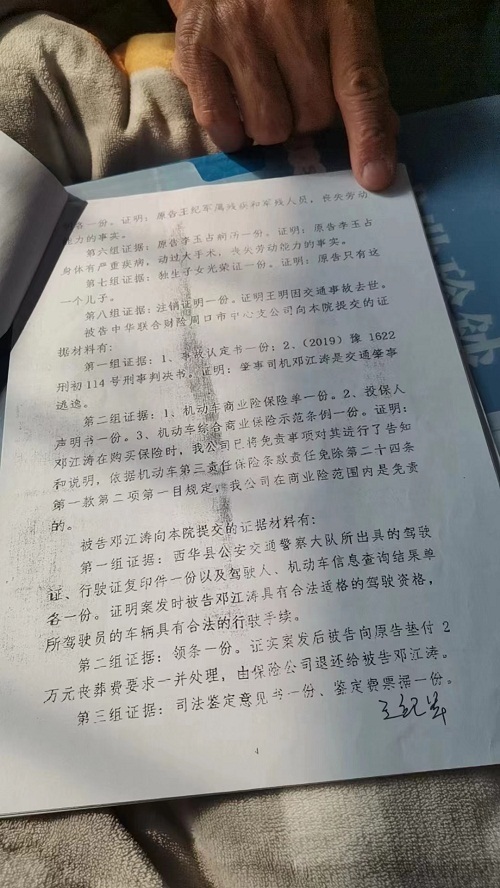 告一份。证明：原告王纪军属残疾和军残人员，丧失劳动
能力的事实。
第六组证据：原告李玉占病历一份。证明：原告李玉占
身体有严重疾病，动过大手术，丧失劳动能力的事实。
第七组证据：独生子女光荣证一份。证明：原告只有这
一个儿子。
第八组证据：注销证明一份。证明王明因交通事故去世。
被告中华联合财险周口市中心支公司向本院提交的证
据材料有：
第一组证据：1、事故认定书一份；2、（2019）豫 1622
刑初 114 号刑事判决书。证明：肇事司机邓江涛是交通肇事
逃逸。
第二组证据：1、机动车商业险保险单一份。2、投保人
声明书一份。3、机动车综合商业保险示范条例一份。证明：
邓江涛在购买保险时，我公司已将免责事项对其进行了告知
和说明，依据机动车第三责任保险条款责任免除第二十四条
第一款第二项第一目规定，我公司在商业险范围内是免责
的。
被告邓江涛向本院提交的证据材料有：
第一组证据：西华县公安交通警察大队所出具的驾驶
证、行驶证复印件一份以及驾驶人、机动车信息查询结果单
各一份。证明案发时被告邓江涛具有合法适格的驾驶资格，
所驾驶员的车辆具有合法的行驶手续。
第二组证据：领条一份。证实案发后被告向原告垫付 2
万元丧葬费要求一并处理，由保险公司退还给被告邓江涛。
第三组证据：司法鉴定意见书一份、鉴定费票据一份。
王纪军
4